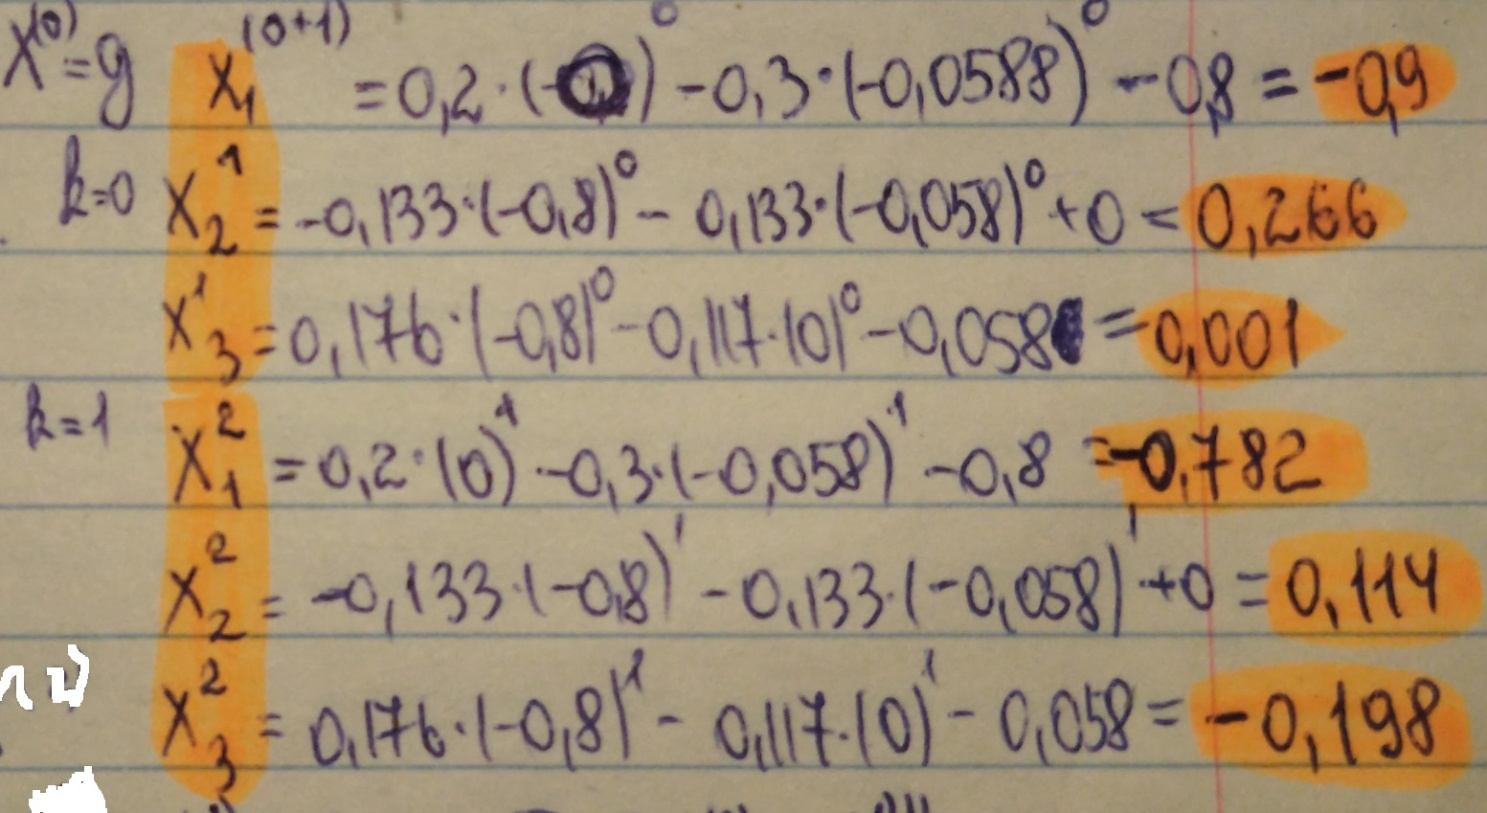 x⁽⁰⁾=g x₁⁽⁰⁺¹⁾ = 0,2·(-0)⁰ -0,3·(-0,0588)⁰ -0,8 = -0,9
k=0 x₂¹ = -0,133·(-0,8)⁰ - 0,133·(-0,058)⁰ +0 = 0,266
x₃¹ = 0,176·(-0,8)⁰ -0,117·(0)⁰ -0,058 = 0,001
k=1 x₁² = 0,2·(0)¹ -0,3·(-0,058)¹ -0,8 = -0,782
x₂² = -0,133·(-0,8)¹ -0,133·(-0,058)¹ +0 = 0,114
x₃² = 0,176·(-0,8)¹ - 0,117·(0)¹ - 0,058 = -0,198